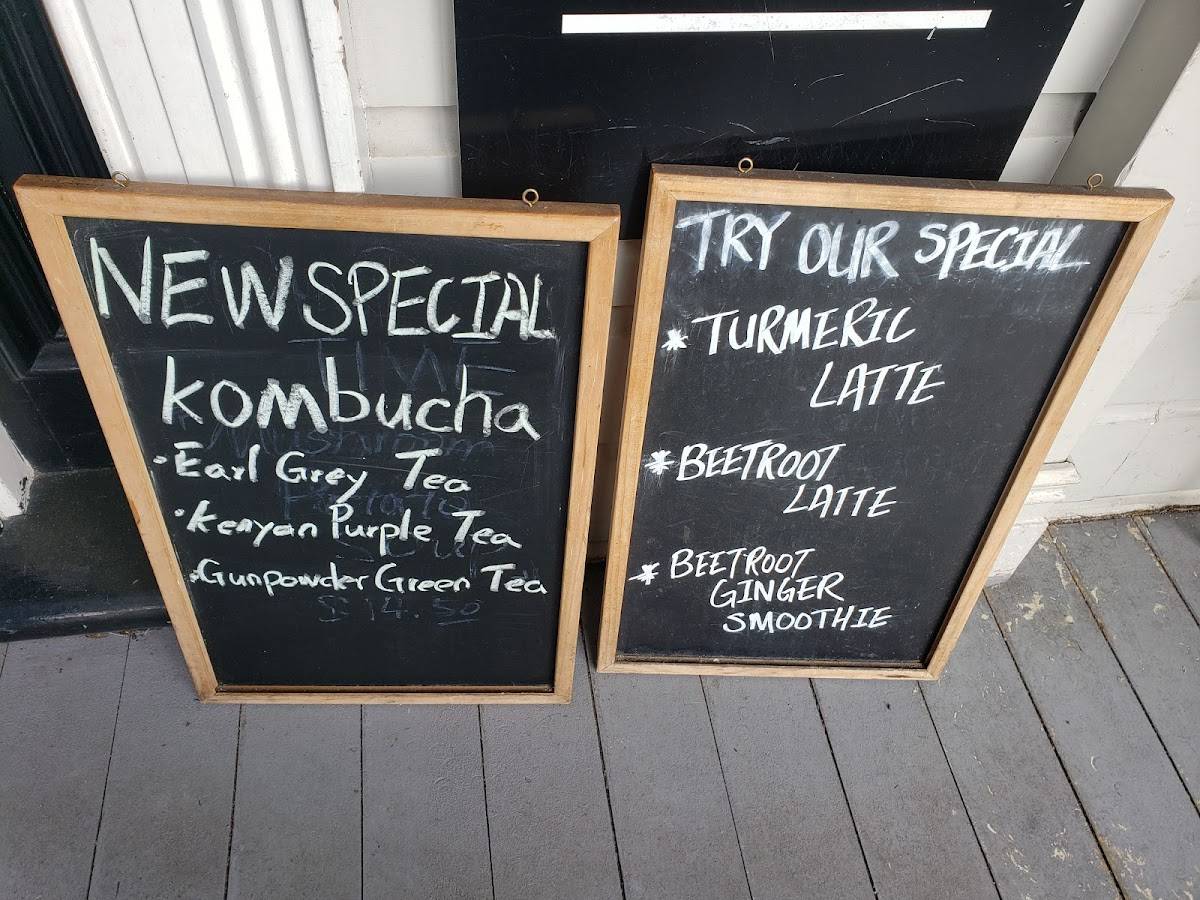 NEW SPECIAL
kombucha
· Earl Grey Tea
· Kenyan Purple Tea
· Gunpowder Green Tea
$14.50
TRY OUR SPECIAL
* TURMERIC
LATTE
* BEETROOT
LATTE
* BEETROOT
GINGER
SMOOTHIE